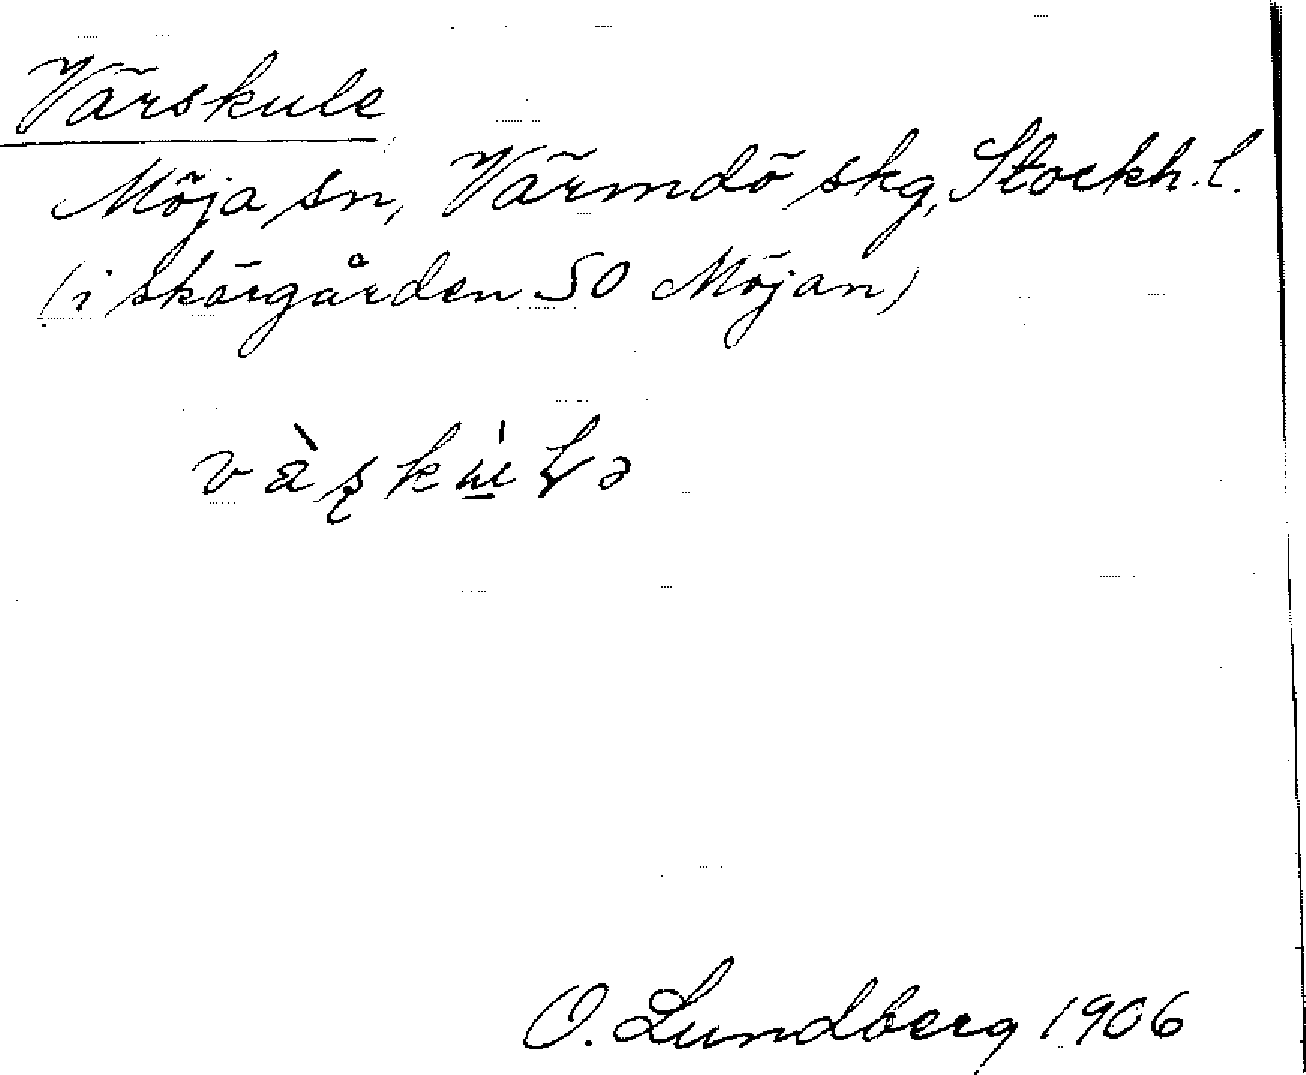 Värskule
Möja sn, Värmdö skg, Stockh. l.
(i skärgården SO Möjan)
O. Lundberg 1906